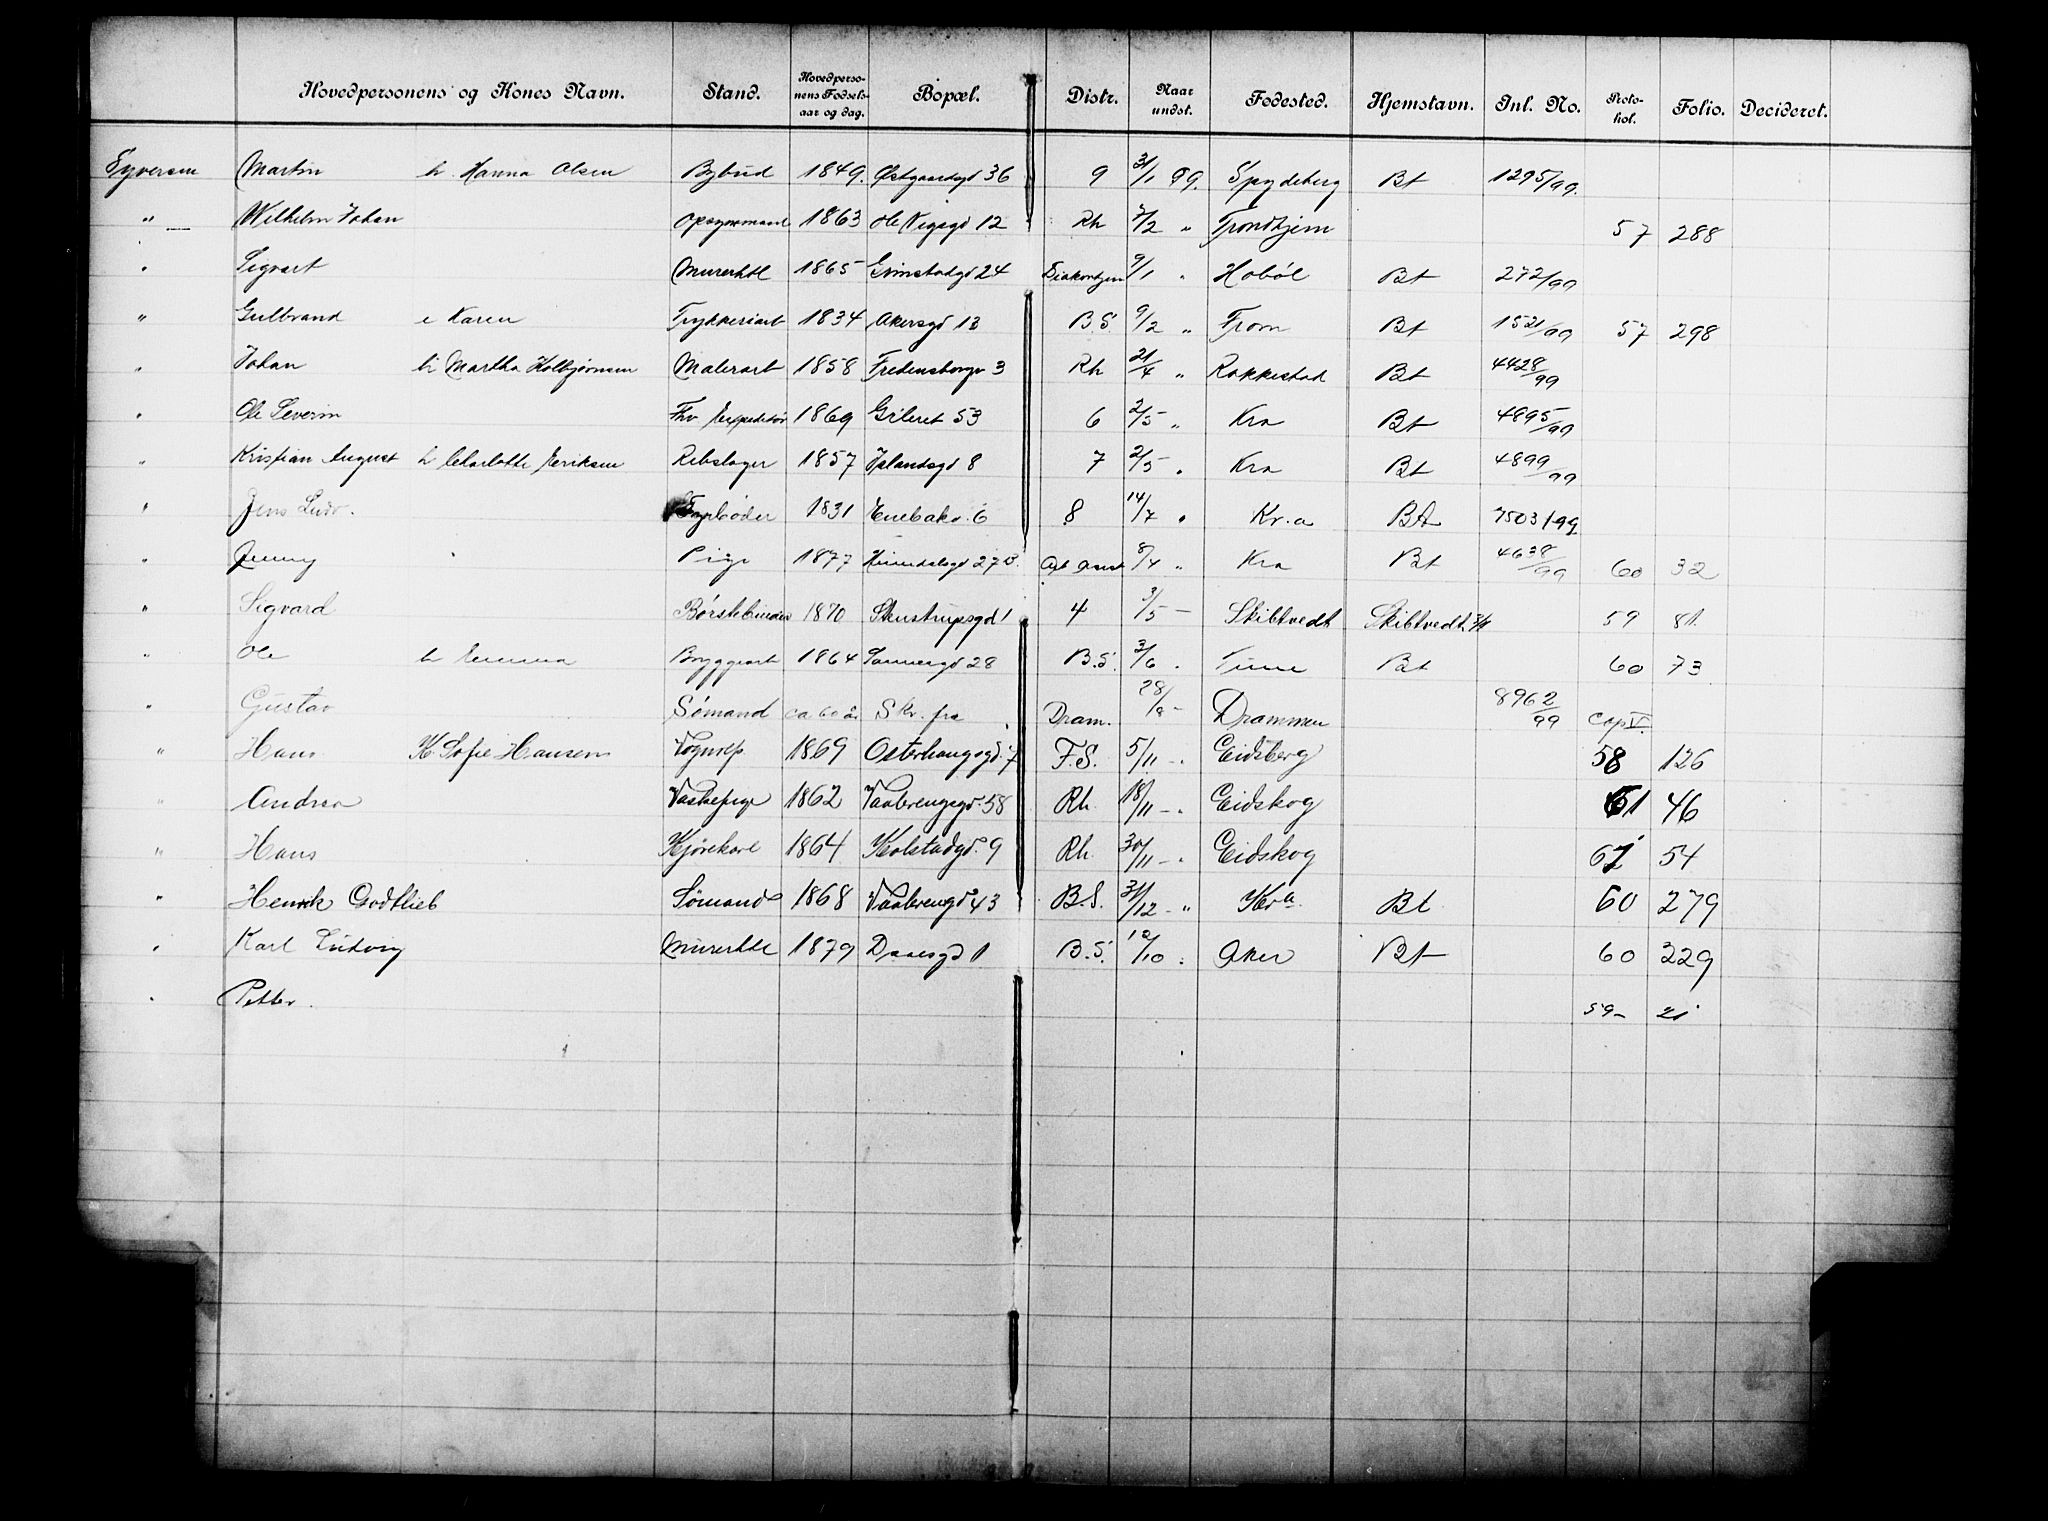 Hovedpersonens og Kones Navn. Stand. Hovedpersonens Fødselsaar og dag. Bopæl. Distr. Naar undst. Fødested. Hjemstavn. Inl. No. Protokol. Folio. Decideret.
Syversen Martin h. Hanna Olsen Bybud 1849. Østgaardsgd 36 9 31/1 99. Spydeberg Bt 1295/99.
" Wilhelm Johan Opsynsmand 1863 Ole Vigsgd 12 Rh 7/2 " Trondhjem 57 288
" Sigvart Murerhdl 1865 Grimstadgd 24 Diakonhjem 9/1 " Hobøl Bt 272/99
" Gulbrand e Karen Trykkeriarb 1834 Akersgd 13 B.S. 9/2 " From Bt 1521/99 57 298
" Johan h. Martha Kolbjørnsen Malerarb 1858 Fredensborgv 3 Rh 21/4 " Rakkestad Bt 4428/99
" Ole Severin Fhv Expeditør 1869 Grileret 53 6 2/5 " Kra Bt 4895/99
" Kristian August h. Charlotte Eriksen Rebslager 1857 Islandsgd 8 7 2/5 " Kra Bt 4899/99
" Jens Ludv. Fyrbøder 1831 Enebakv. 6 8 14/7 " Kr.a Bt 7503/99
" Jenny Pige 1877 27 B. 8/4 " Kra Bt 4638/99 60 32
" Sigvard Børstebinder 1870 Skustrupsgd 1 4 3/5 - Skibtvedt Skibtvedt 59 81.
" Ole h. Emma Bryggearb 1864 Sannergd 28 B.S. 3/6 . Tune Bt 60 73
" Gustav Sømand ca 60 år Skr. fra Dram. 28/9 - Drammen 8962/99 Cop V.
" Hans K. Sofie Hansen Vognrep. 1869 Osterhaugsgd. 7 F.S. 5/11 - " Eidsberg 58 126
" Andrea Vaskepige 1862 Vaalerengsgd. 58 Rh. 18/11 - " Eidskog 61 46
" Hans Kjørekarl 1864 Kolstadgd. 9 Rh. 30/11 - " Eidskog 61 54
" Henrik Godtlieb Sømand 1868 Vaalerengd 43 B.S. 31/12 - " Kra. Bt 60 279
" Karl Ludvig Murerhdl 1879 Daaesgd 1 B.S. 12/10 " Aker Bt 60 229
" Petter. 59- 21